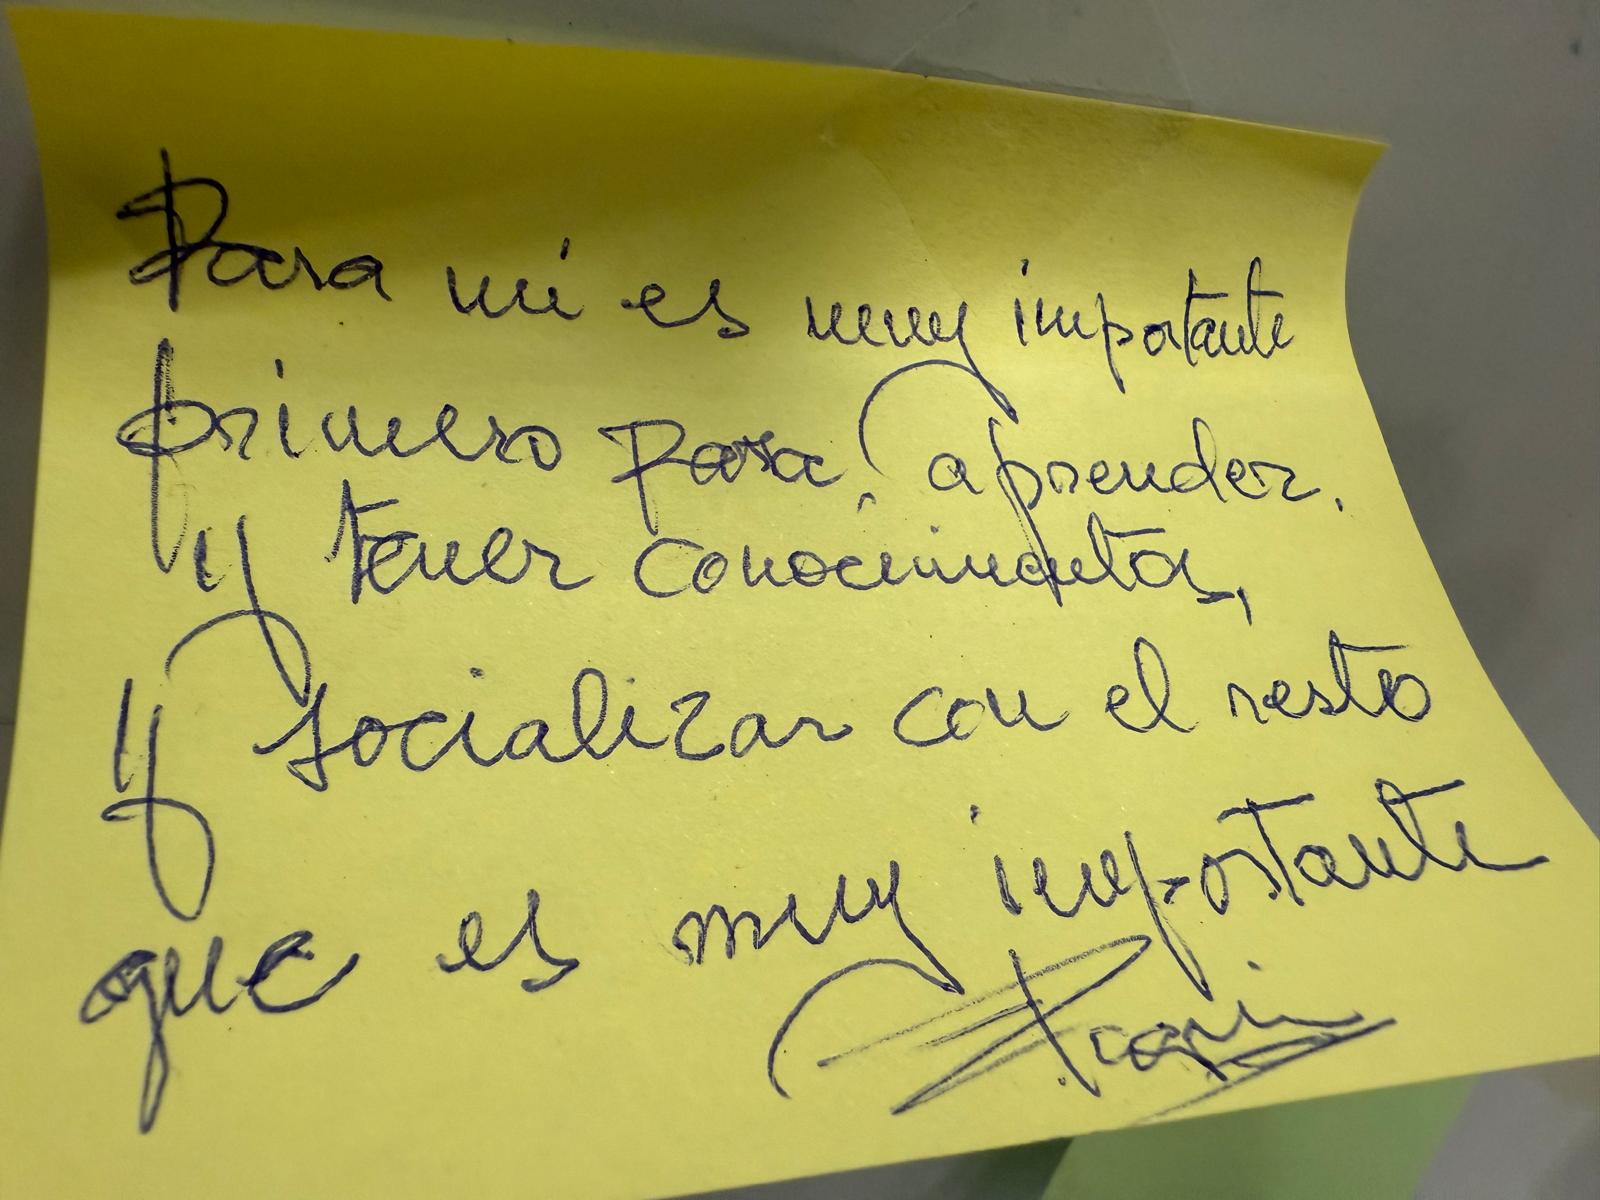 Para mi es muy importante
primero para, aprender,
y tener conocimientos,
y socializar con el resto
que es muy importante